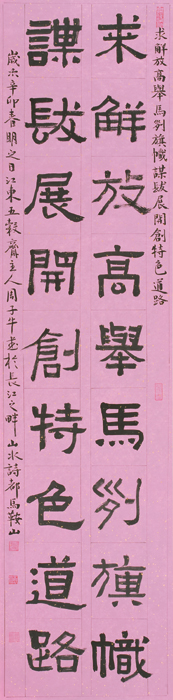 求解放高舉馬列旗幟謀跋展開創特色道路
求解放高舉馬列旗幟
謀跋展開創特色道路
歲次辛卯春明之日江東五穀齋主人周子牛書於長江之畔山水詩都馬鞍山